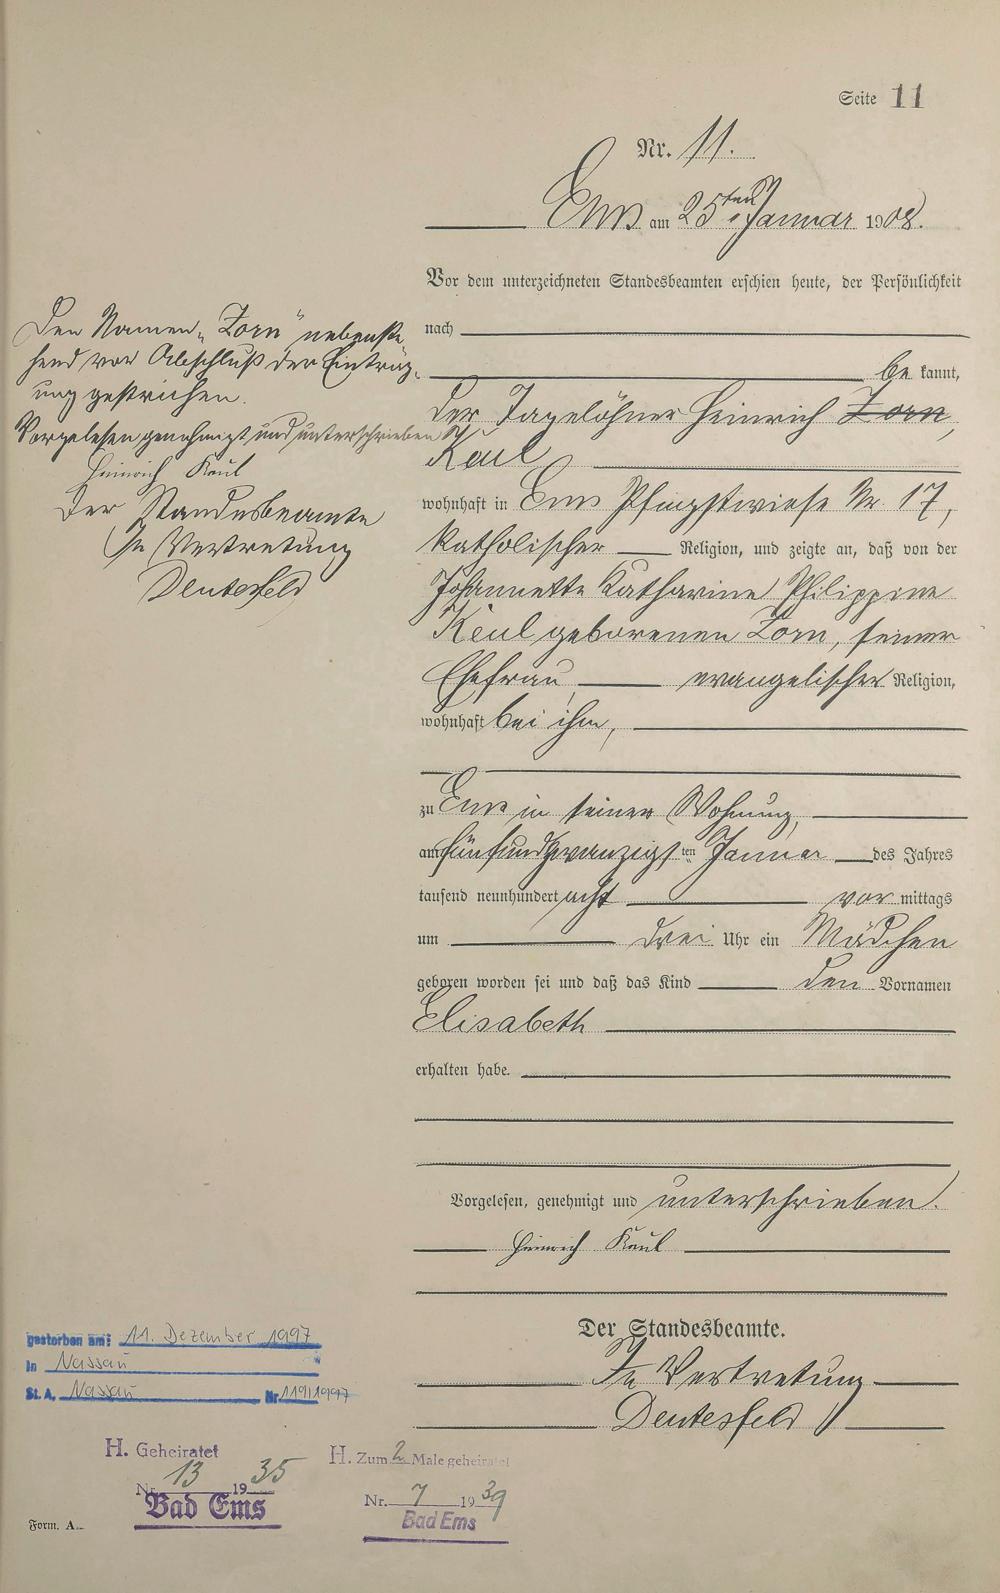 Seite 11
Nr. 11.
Ems am 25ten Januar 1908.
Vor dem unterzeichneten Standesbeamten erschien heute, der Persönlichkeit
nach
be kannt,
der Tagelöhner Heinrich Zorn,
Keul
wohnhaft in Ems Pfingstwiese Nr. 17,
katholischer Religion, und zeigte an, daß von der
Johannette Katharine Philippine
Keul geborenen Zorn, seiner
Ehefrau evangelischer Religion,
wohnhaft bei ihm,
zu Ems in seiner Wohnung,
am fünfundzwanzigsten Januar des Jahres
tausend neunhundert acht vor mittags
um drei Uhr ein Mädchen
geboren worden sei und daß das Kind den Vornamen
Elisabeth
erhalten habe.
Vorgelesen, genehmigt und unterschrieben.
Heinrich Keul
Der Standesbeamte.
In Vertretung
Deutesfeld
Den Namen „Zorn" nebenste
hend vor Abschluß der Eintrag-
ung gestrichen.
Vorgelesen genehmigt und unterschrieben
Heinrich Keul
Der Standesbeamte
In Vertretung
Deutesfeld
gestorben am: 11. Dezember 1997
in Nassau
St. A. Nassau Nr 119/1997
H. Geheiratet
Nr. 13 1935
Bad Ems
H. Zum 2 Male geheiratet
Nr. 7 1939
Bad Ems
Form. A.